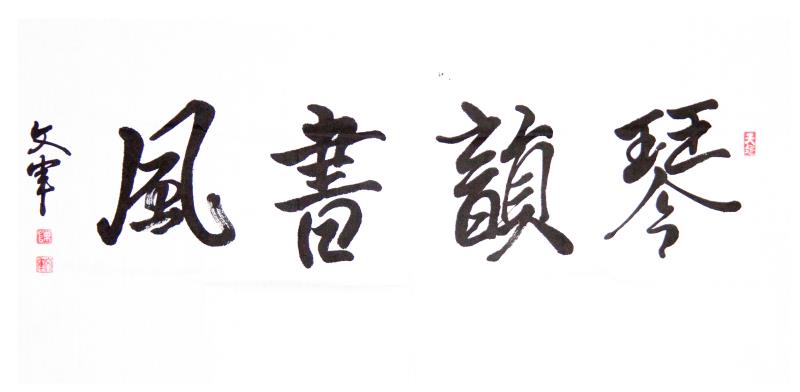 琴韻書風
文軍